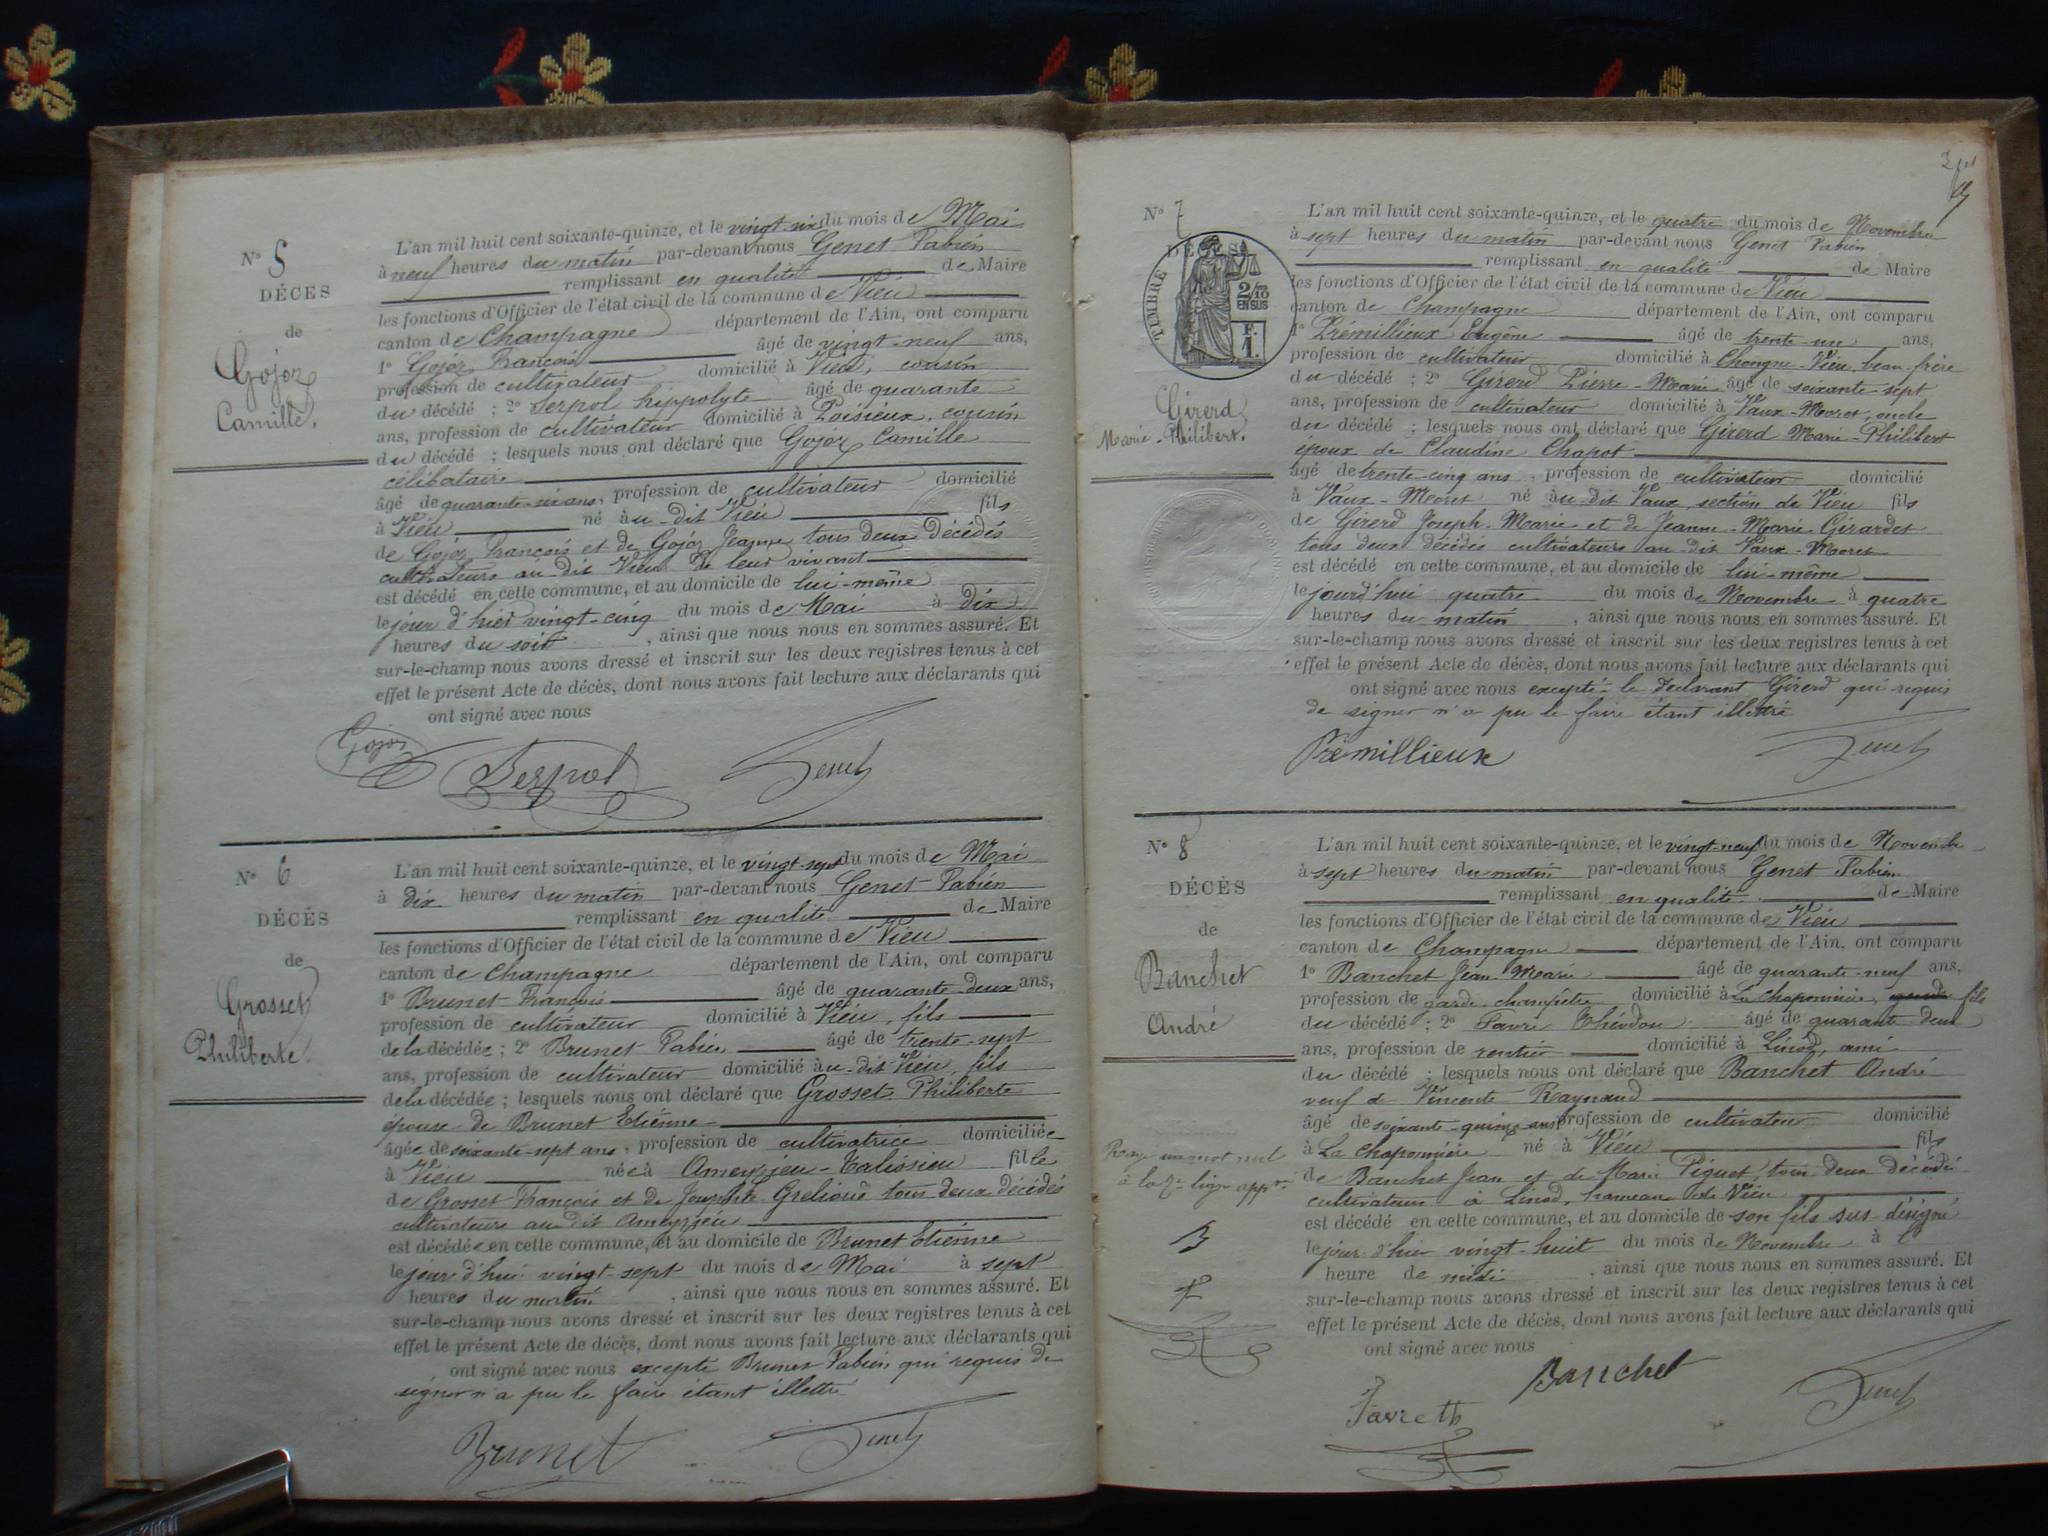 N° 5
DÉCES
de
Gojoz
Camille.
L'an mil huit cent soixante-quinze, et le vingt-six du mois de Mai
à neuf heures du matin par-devant nous Genet Fabien
remplissant en qualité de Maire
les fonctions d'Officier de l'état civil de la commune de Vieu
canton de Champagne département de l'Ain, ont comparu
1° Gojoz François âgé de vingt-neuf ans,
profession de cultivateur domicilié à Vieu, cousin
du décédé ; 2° Serpol hippolyte âgé de quarante
ans, profession de cultivateur domicilié à Poisieux, cousin
du décédé ; lesquels nous ont déclaré que Gojoz Camille
célibataire
âgé de quarante-six ans, profession de cultivateur domicilié
à Vieu né au-dit Vieu fils
de Gojoz François et de Gojoz Jeanne tous deux décédés
cultivateurs au-dit Vieu de leur vivant
est décédé en cette commune, et au domicile de lui-même
le jour d'hier vingt-cinq du mois de Mai à dix
heures du soir, ainsi que nous nous en sommes assuré. Et
sur-le-champ nous avons dressé et inscrit sur les deux registres tenus à cet
effet le présent Acte de décès, dont nous avons fait lecture aux déclarants qui
ont signé avec nous
Gojoz Serpol Genet
N° 6
DÉCÈS
de
Grosset
Philiberte.
L'an mil huit cent soixante-quinze, et le vingt-sept du mois de Mai
à dix heures du matin par-devant nous Genet Fabien
remplissant en qualité de Maire
les fonctions d'Officier de l'état civil de la commune de Vieu
canton de Champagne département de l'Ain, ont comparu
1° Brunet François âgé de quarante-deux ans,
profession de cultivateur domicilié à Vieu, fils
de la décédée ; 2° Brunet Fabien âgé de trente-sept
ans, profession de cultivateur domicilié au-dit Vieu, fils
de la décédée ; lesquels nous ont déclaré que Grosset Philiberte
épouse de Brunet Etiénne
âgée de soixante-sept ans, profession de cultivatrice domiciliée
à Vieu née à Ameyzieu-Talissieu fille
de Grosset François et de tous deux décédés
cultivateurs au dit Ameyzieu
est décédée en cette commune, et au domicile de Brunet Etiénne
le jour d'hui vingt-sept du mois de Mai à sept
heures du matin, ainsi que nous nous en sommes assuré. Et
sur-le-champ nous avons dressé et inscrit sur les deux registres tenus à cet
effet le présent Acte de décès, dont nous avons fait lecture aux déclarants qui
ont signé avec nous excepté Brunet Fabien qui requis de
signer n'a pu le faire étant illettré
Brunet Genet
N° 7
DÉCÈS
TIMBRE
2/10
EN SUS
1 F.
Girerd
Marie-Philibert.
L'an mil huit cent soixante-quinze, et le quatre du mois de Novembre
à sept heures du matin par-devant nous Genet Fabien
remplissant en qualité de Maire
les fonctions d'Officier de l'état civil de la commune de Vieu
canton de Champagne département de l'Ain, ont comparu
1° Prémillieux Eugène âgé de trente-un ans,
profession de cultivateur domicilié à Chongne-Vieu, beau-frère
du décédé ; 2° Girerd Pierre-Marie âgé de soixante-sept
ans, profession de cultivateur domicilié à Vaux-Moret, oncle
du décédé ; lesquels nous ont déclaré que Girerd Marie-Philibert
époux de Claudine Chapot
âgé de trente-cinq ans, profession de cultivateur domicilié
à Vaux-Moret né au-dit Vaux, section de Vieu fils
de Girerd Joseph-Marie et de Jeanne-Marie Girardet
tous deux décédés cultivateurs au-dit Vaux-Moret
est décédé en cette commune, et au domicile de lui-même
le jourd'hui quatre du mois de Novembre à quatre
heures du matin, ainsi que nous nous en sommes assuré. Et
sur-le-champ nous avons dressé et inscrit sur les deux registres tenus à cet
effet le présent Acte de décès, dont nous avons fait lecture aux déclarants qui
ont signé avec nous excepté le déclarant Girerd qui requis
de signer n'a pu le faire étant illettré
Prémillieux Genet
N° 8
DÉCÈS
de
Banchet
André
Rayé un mot nul
à la 7e ligne appr.
L'an mil huit cent soixante-quinze, et le vingt-neuf du mois de Novembre
à sept heures du matin par-devant nous Genet Fabien
remplissant en qualité de Maire
les fonctions d'Officier de l'état civil de la commune de Vieu
canton de Champagne département de l'Ain, ont comparu
1° Banchet Jean-Marie âgé de quarante-neuf ans,
profession de garde-champêtre domicilié à La chaponnière, fils
du décédé ; 2° Favre Théodore âgé de quarante-deux
ans, profession de rentier domicilié à Linod, ami
du décédé ; lesquels nous ont déclaré que Banchet André
veuf de Vincente Raynaud
âgé de soixante-quinze ans profession de cultivateur domicilié
à La Chaponnière né à Vieu fils
de Banchet Jean et de Marie Piquet, tous deux décédés
cultivateurs à Linod, hameau de Vieu
est décédé en cette commune, et au domicile de son fils sus-désigné
le jour d'hier vingt-huit du mois de Novembre à l'
heure de midi, ainsi que nous nous en sommes assuré. Et
sur-le-champ nous avons dressé et inscrit sur les deux registres tenus à cet
effet le présent Acte de décès, dont nous avons fait lecture aux déclarants qui
ont signé avec nous
Banchet
Favre th Genet